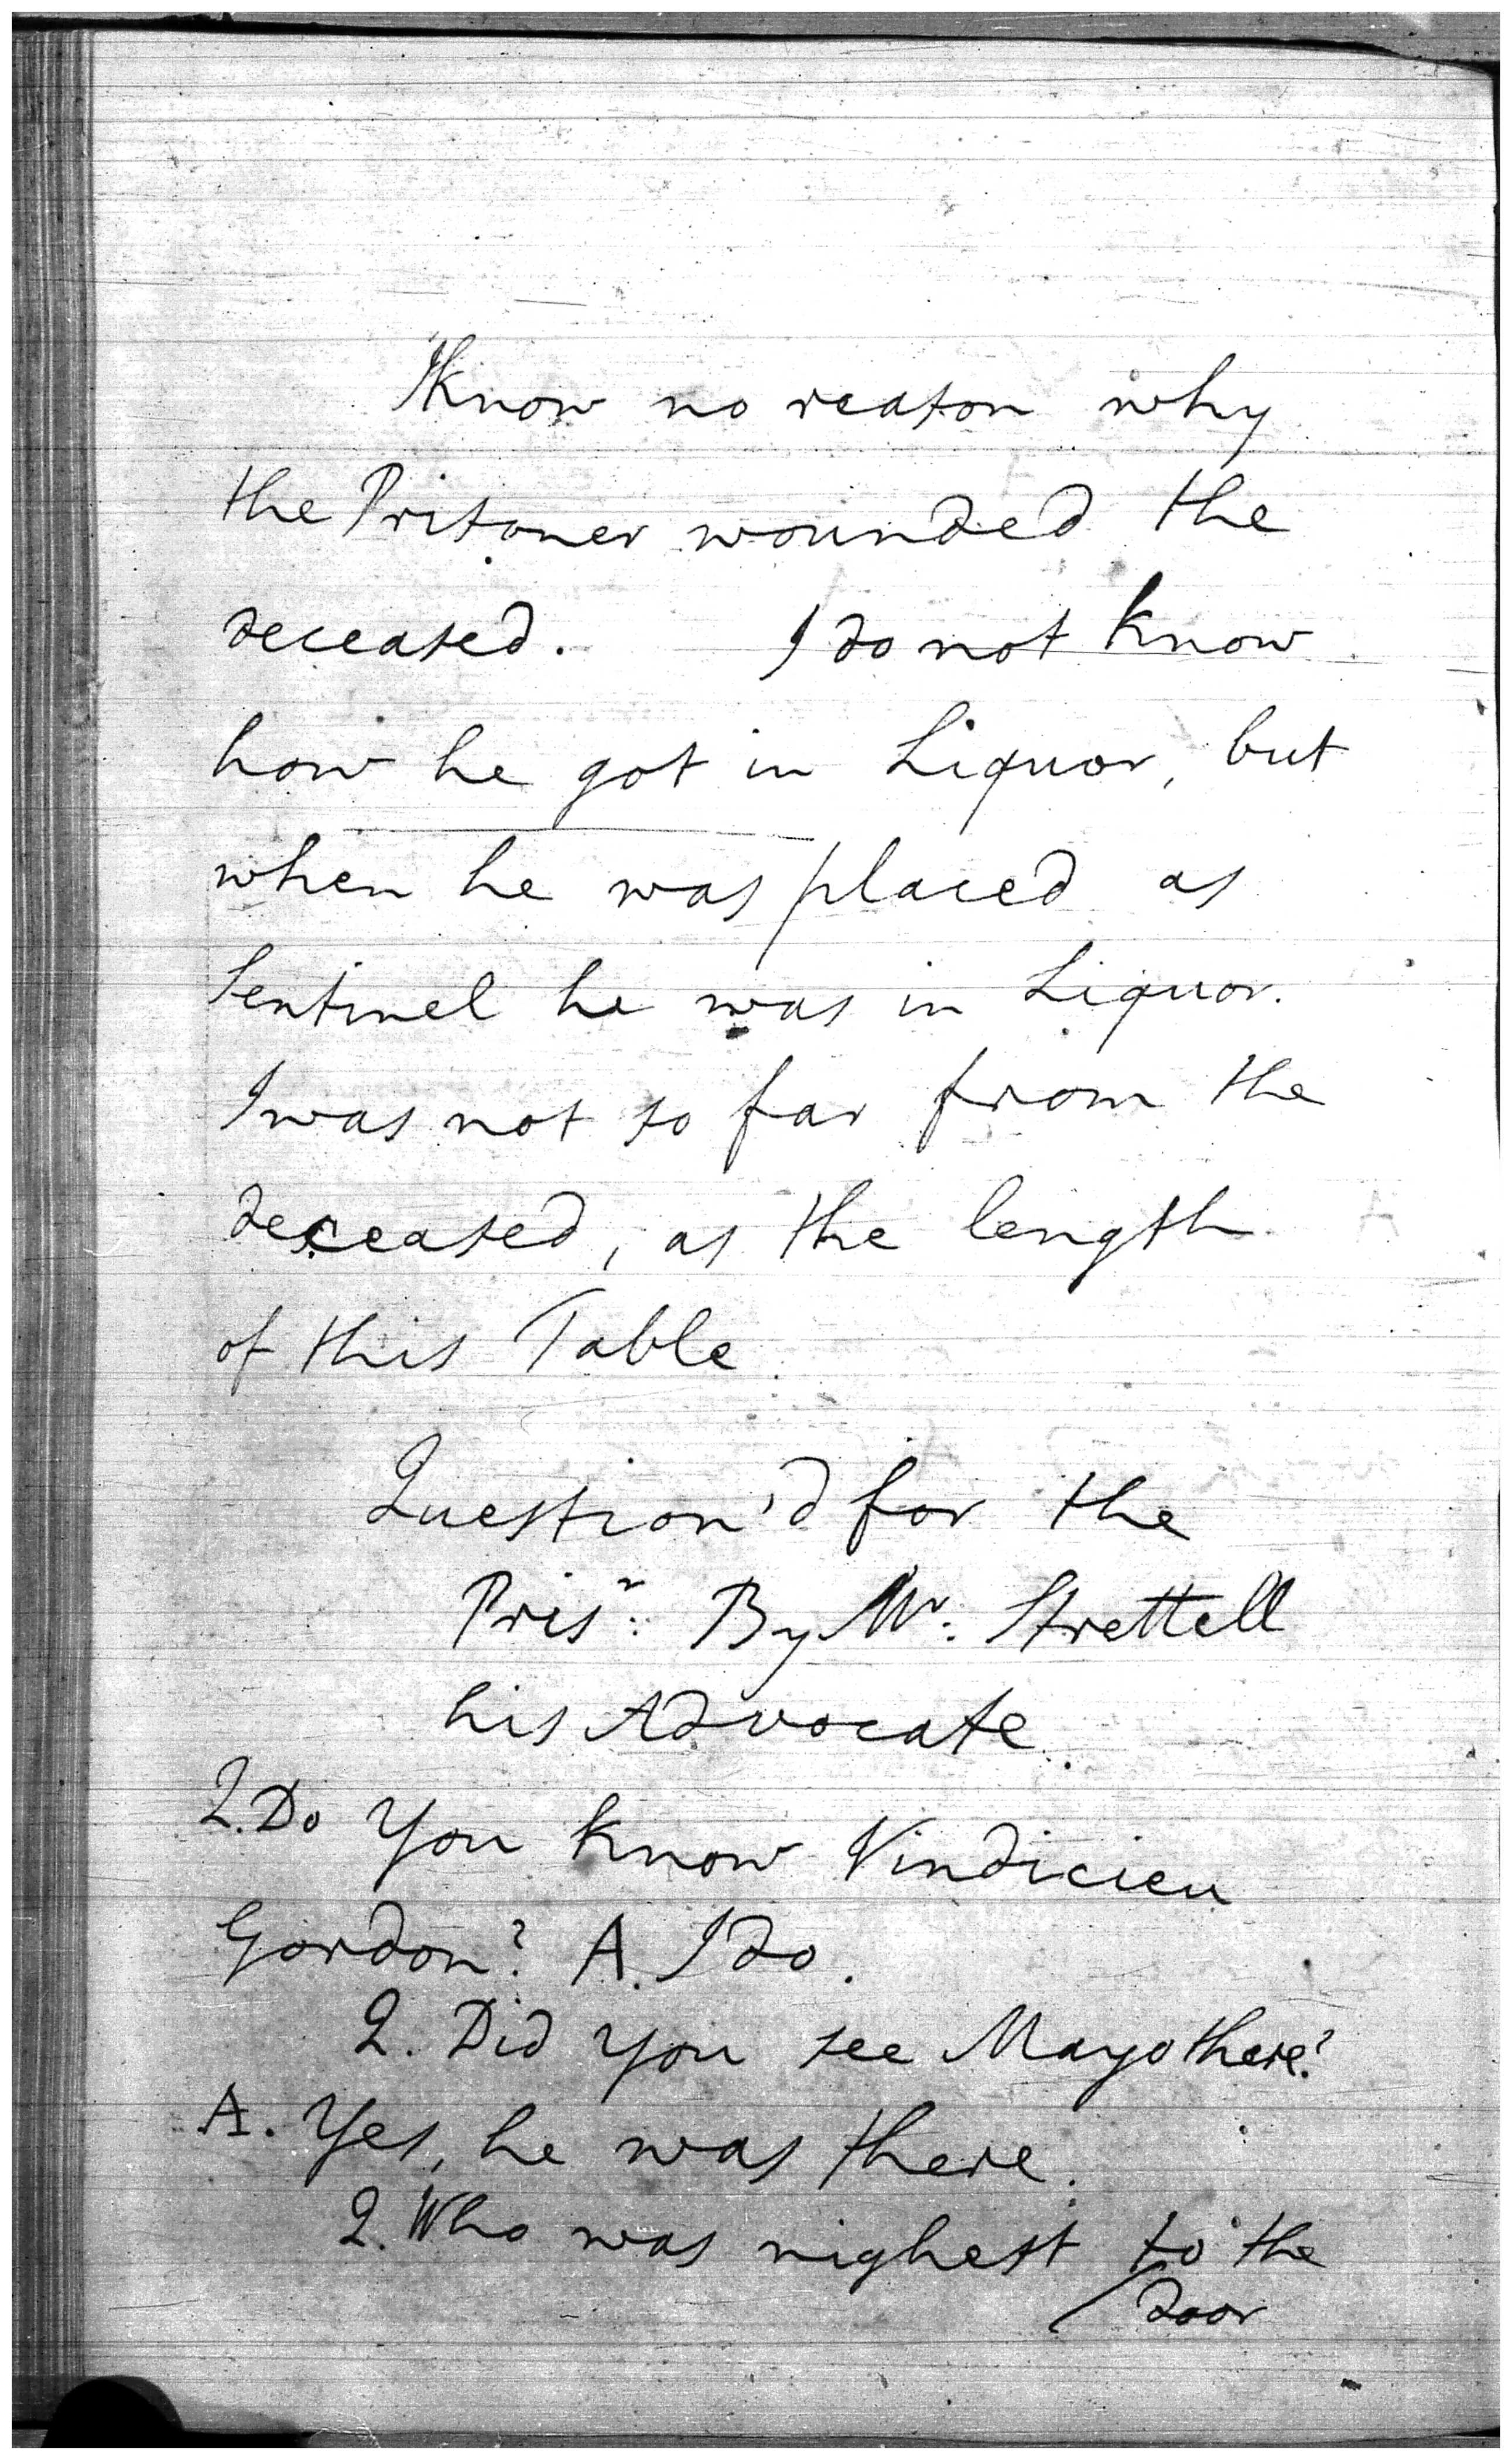 I know no reason why
the Prisoner wounded the
deceased. I do not know
how he got in Liquor, but
when he was placed as
Sentinel he was in Liquor.
I was not so far from the
deceased, as the length
of this Table.
Question'd for the
Prisr: By Mr: Strettell
his Advocate.
Q. Do You know Vindicieu
Gordon? A. I do.
Q. Did you see Mayo there?
A. Yes, he was there.
Q. Who was nighest to the
door